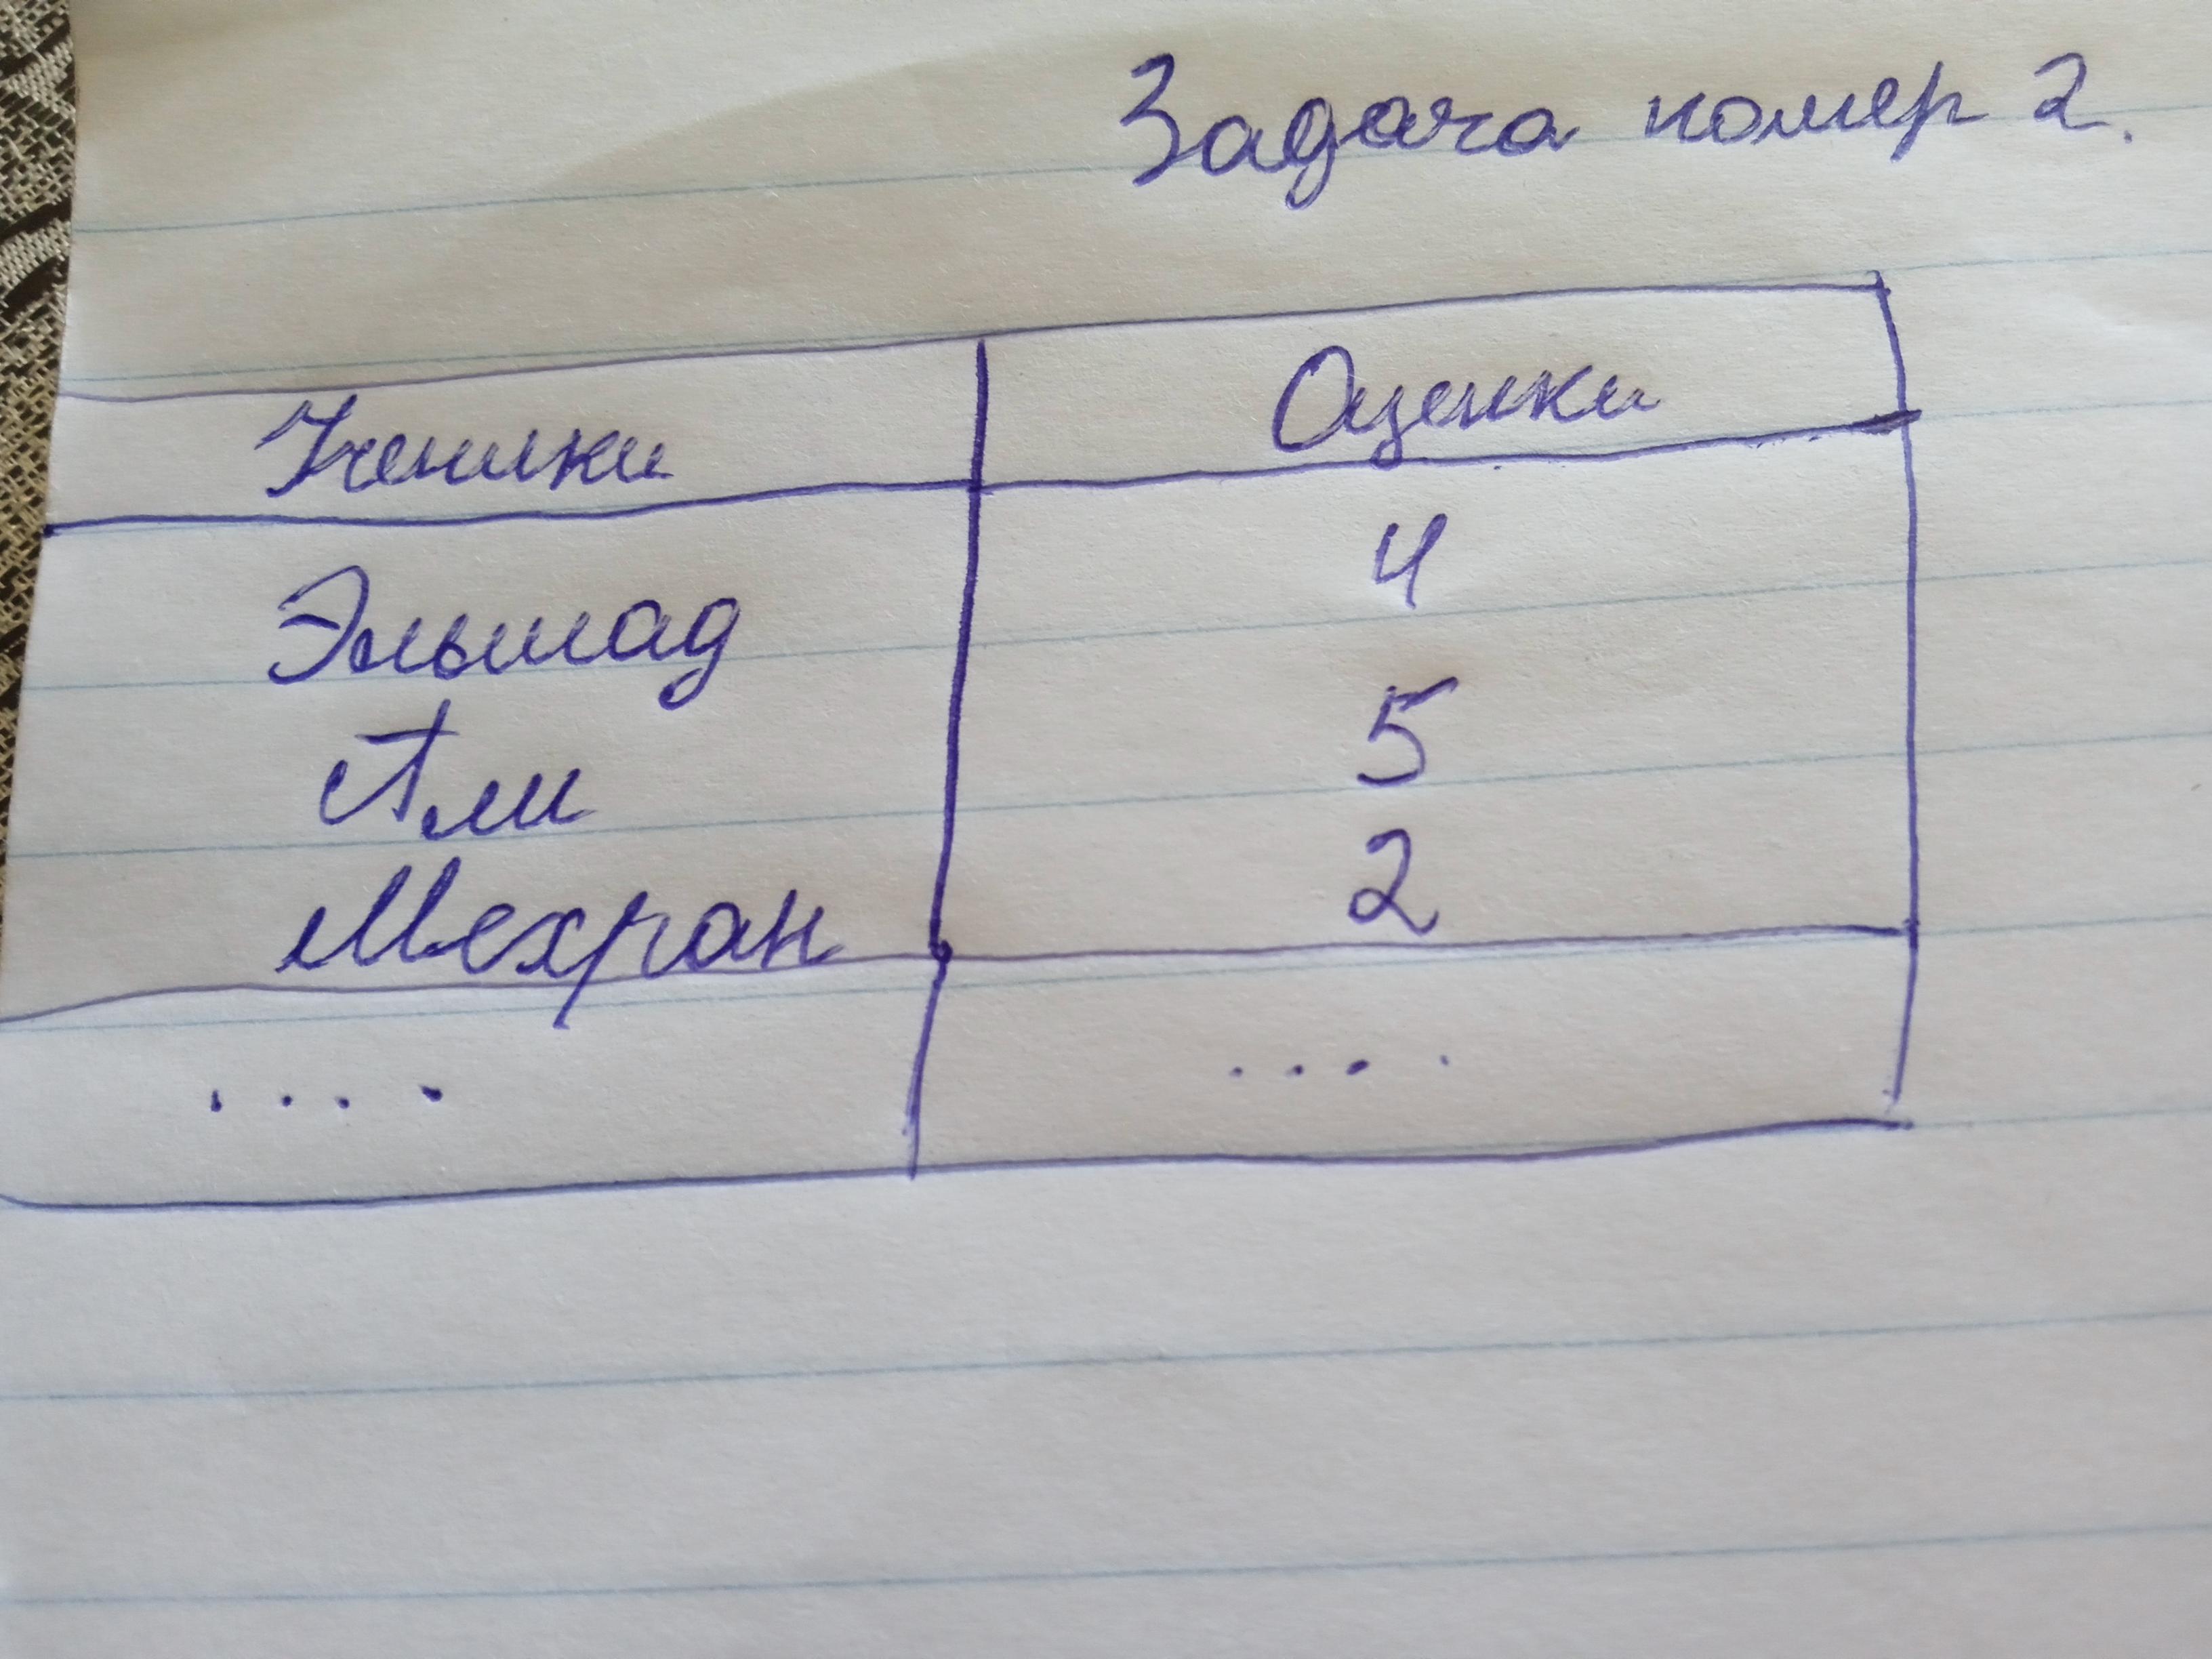 Задача номер 2.
Ученики Оценки
Эльшад 4
Али 5
Мехран 2
.... ....